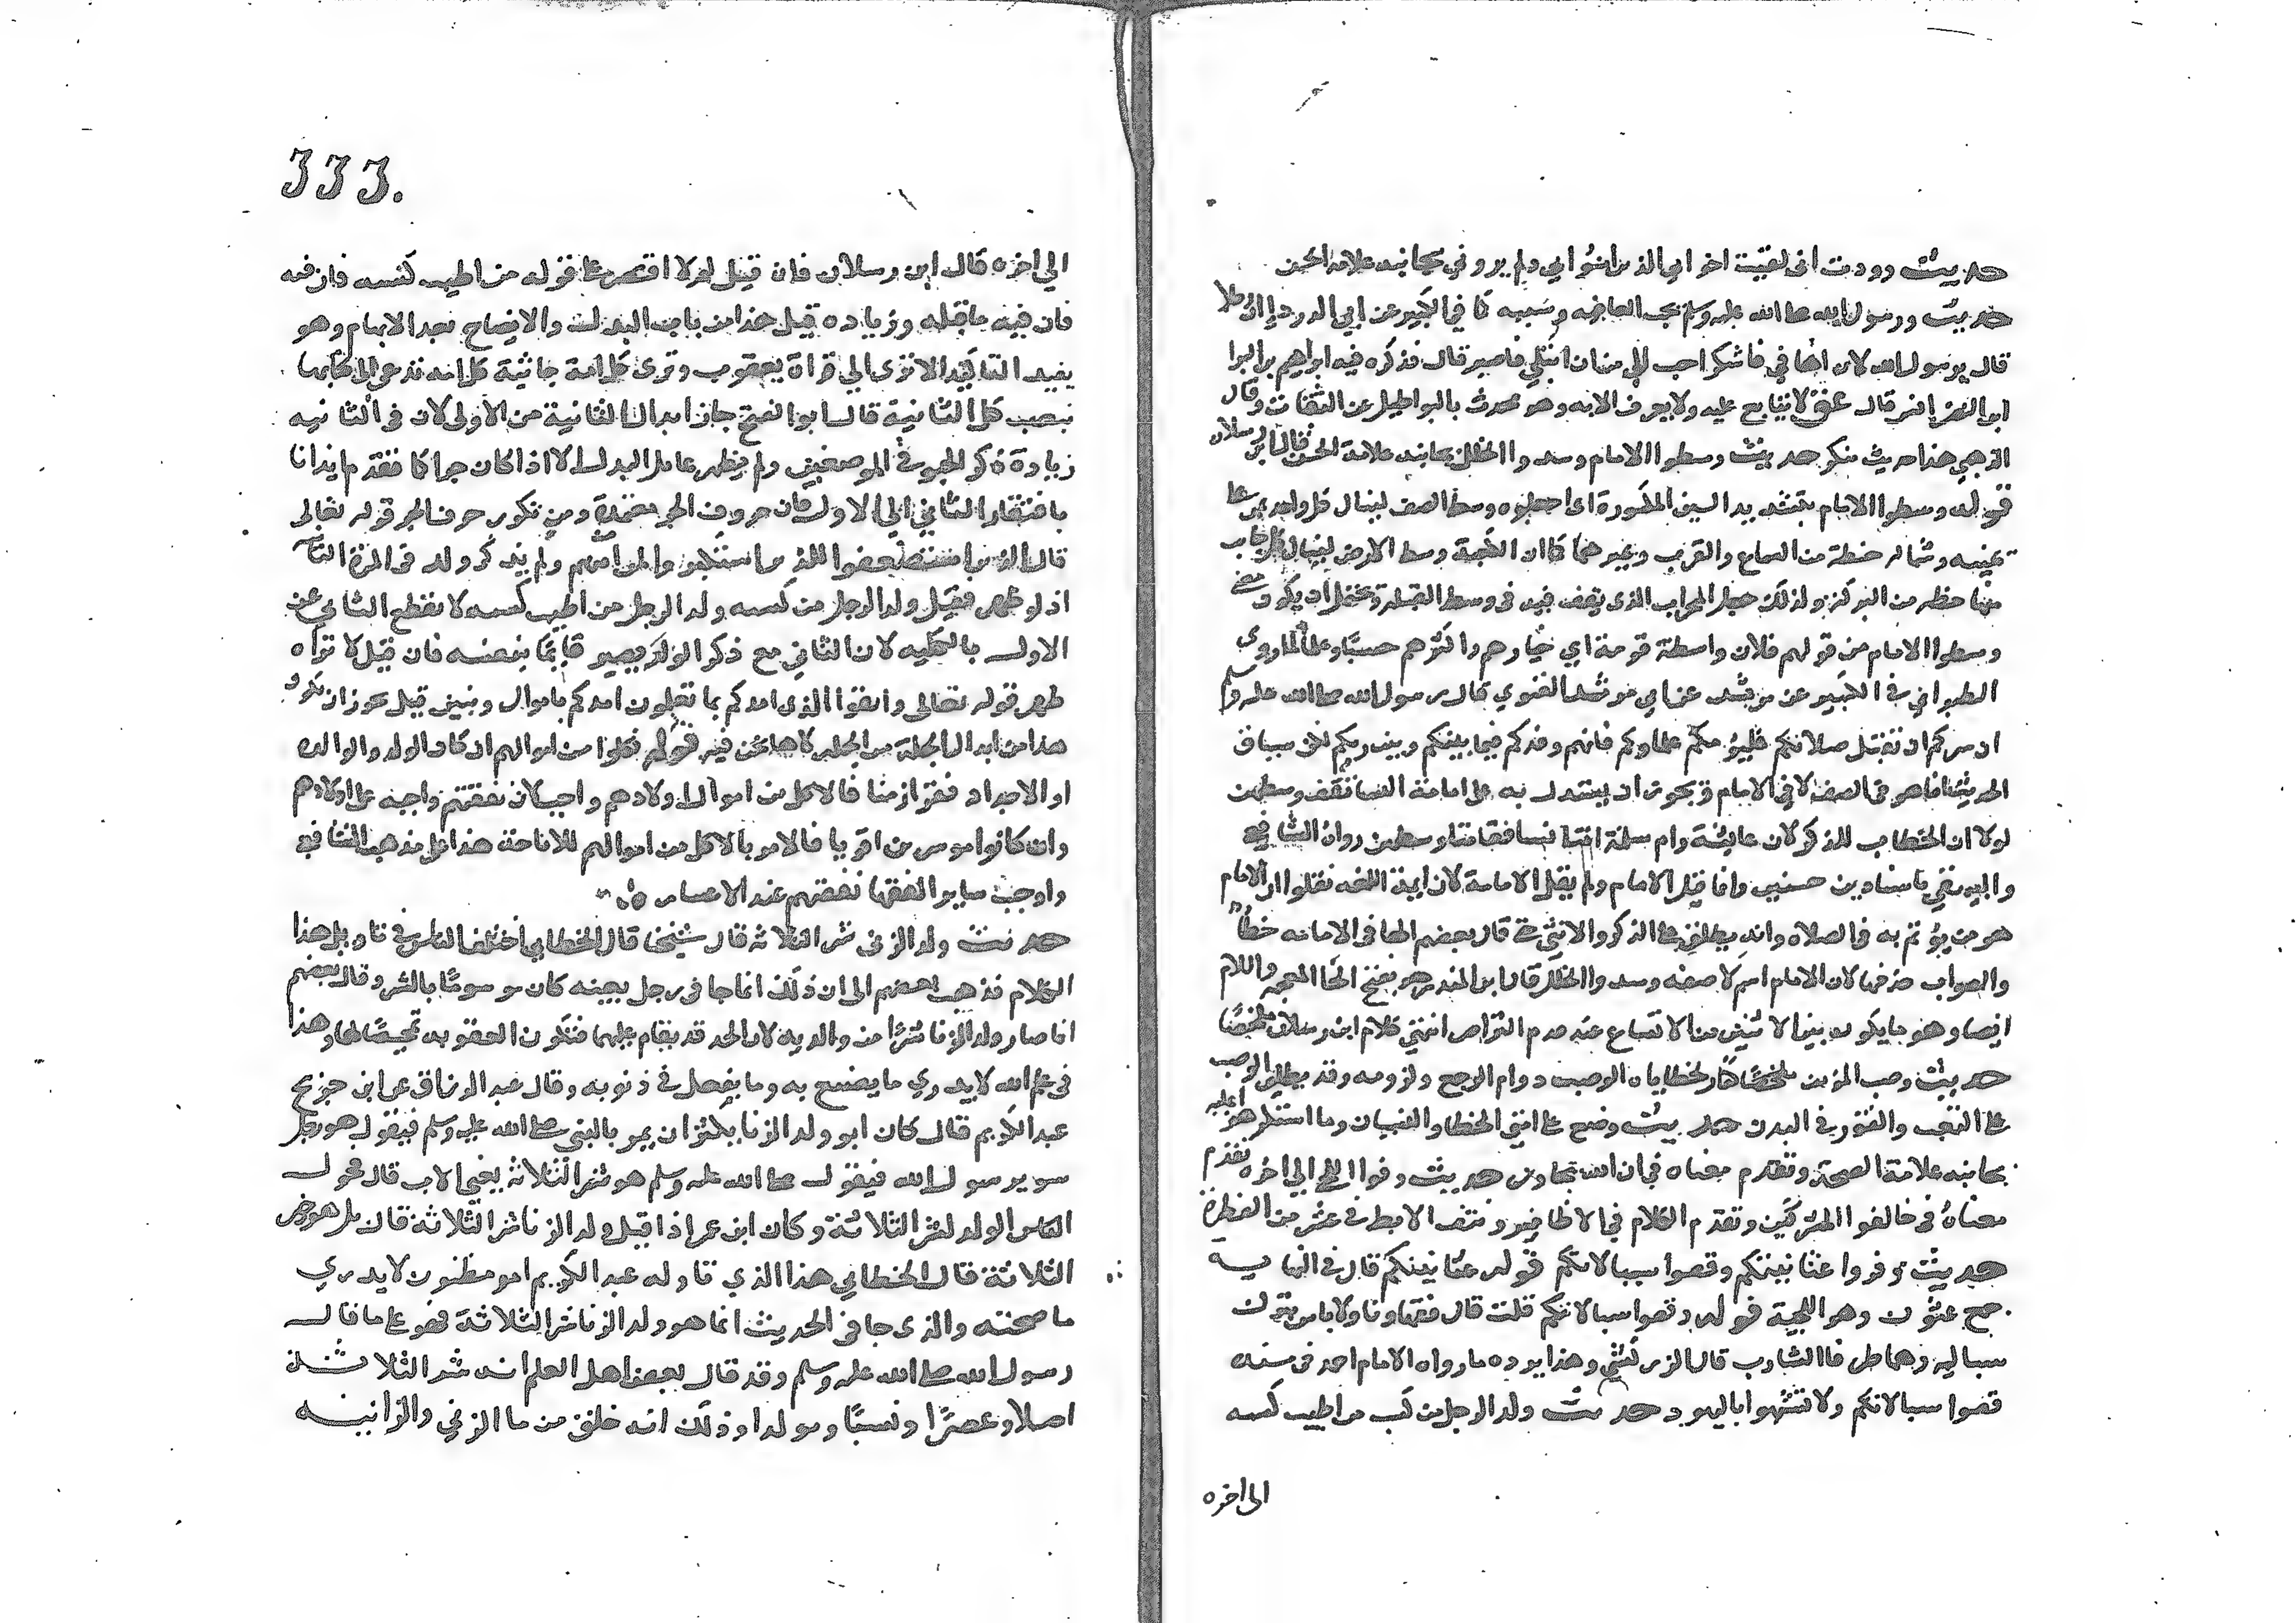 حديث وددت اني لقيت اخواني الذين امنوا بي ولم يروني بجانبه علامة الحسن
حديث ورسول الله صلى الله عليه وسلم يحب العافيه وسببه كما في الكبير عن ابي الدرداء ان رجلا
قال يرسول الله لان اعافي فاشكر احب الي من ان ابتلي فاصبر قال فذكره فيه ابراهيم بن البراء
ابن النضر بن انس قال عق لا يتابع عليه ولا يعرف الا به وهو يحدث بالبواطيل عن الثقات وقال
الذهبي هذا حديث منكر حديث وسطوا الامام وسدوا الخلل بجانبه علامة الحسن قال ابن رسلان
قوله وسطوا الامام بتشديد السين المكسورة اي اجعلوه وسط الصف لينال كل واحد ممن على
يمينه وشماله حظه من السماع والقرب وغيرهما كما ان الكعبة وسط الارض لينال كل جانب
منها حظه من البركة ولذلك جعل المحراب الذي يقف فيه في وسط القبلة ويحتمل ان يكون معنى
وسطوا الامام من قولهم فلان واسطة قومه اي خيارهم واكثرهم حسبا وعلما لما روى
الطبراني في الكبير عن مرثد عن ابي مرثد الغنوي قال رسول الله صلى الله عليه وسلم
ان سركم ان تقبل صلاتكم فليؤمكم علماوكم فانهم وفدكم فيما بينكم وبين ربكم لكن سياق
الحديث انما هو في الصف لا في الامام ويجوز ان يستدل به على امامة النسا تقف وسطهن
لولا ان الخطاب للذكور لان عائشة وام سلمة امتا نسا فقامتا وسطهن رواه الشافعي
والبيهقي باسنادين حسنين وانما قيل الامام ولم يقل الامامة لان ايمة اللغه نقلوا ان الامام
هو من يؤتم به في الصلاه وانه يطلق على الذكر والانثى حتى قال بعضهم الها في الامامه خطأ
والصواب حذفها لان الامام اسم لا صفه وسدوا الخلل قال ابن المنذر هو بفتح الخا المعجمه واللام
ايضا وهو ما يكون بين الاثنين من الاتساع عند عدم التراص انتهى كلام ابن رسلان ملخصا
حديث وصب المؤمن كفارة لخطاياه الوصب دوام الوجع ولزومه وقد يطلق الوصب
على التعب والفتور في البدن حديث وضع عن امتي الخطا والنسيان وما استكرهوا عليه
بجانبه علامة الصحة وتقدم معناه في ان الله تجاوز حديث وفروا اللحى الى اخره تقدم
معناه في خالفوا المشركين وتقدم الكلام في الاظافير ونتف الابط في عشر من الفطرة
حديث وفروا عثانينكم وقصوا سبالاتكم قوله عثانينكم قال في النهايه
جمع عثنون وهو اللحية قوله وقصوا سبالاتكم قلت قال
سباليه وهما طرفا الشارب قال الزركشي وهذا يرده ما رواه الامام احمد في مسنده
قصوا سبالاتكم ولا تشبهوا باليهود حديث ولد الرجل من كسبه من اطيب كسبه
الى اخره
333.
الى اخره قال ابن رسلان فان قيل لم لا اقتصر على قوله من اطيب كسبه فان فيه
فان فيه ما قبله وزياده قيل هذا من باب البدل والايضاح بعد الابهام وهو
يفيد التاكيد الا ترى الى قراة يعقوب وترى كل امة جاثية كل امة تدعى الى كتابها
بنصب كل الثانية قال ابو الفتح جاز ابدال الثانية من الاولى لان في الثانيه
زيادة ذكر الجثو في الموضعين ولم يظهر عامل البدل الا اذا كان جرا كما تقدم ايذانا
بافتقار الثاني الى الاول فان حروف الجر مفتقرة ومن تكرر حرف الجر قوله تعالى
قال الذين استضعفوا للذين استكبروا لمن امن منهم ولم يذكر ولد في المرة الثانية
اذ لو ظهر فقيل ولد الرجل من كسبه ولد الرجل من اطيب كسبه لا نقطع الثاني عن
الاول بالكليه لان الثاني مع ذكر الولد يصير قايما بنفسه فان قيل لا تراه
ظهر قوله تعالى واتقوا الذي امدكم بما تعلمون امدكم باموال وبنين قيل يجوز ان يكون
هذا من ابدال الجملة من الجمله كما ها نحن فيه قوله فكلوا من اموالهم ان كان الولد والوالد
او الاجداد فقرا زمنا فالاكل من اموال اولادهم واجب لان نفقتهم واجبه على اولادهم
وان كانوا موسرين اقويا فالامر بالاكل من اموالهم للاباحة هذا على مذهب الشافعي
واوجب ساير الفقها نفقتهم عند الاعسار
حديث ولد الزنى شر الثلاثة قال شيخنا قال الخطابي اختلف الناس في تاويل هذا
الكلام فذهب بعضهم الى ان ذلك انما جا في رجل بعينه كان موسوما بالشر وقال بعضهم
انما صار ولد الزنا شرا من والديه لان الحد قد يقام عليهما فتكون العقوبه تمحيصا لهما وهذا
في علم الله لا يدري ما يصنع به وما يفعل في ذنوبه وقال عبد الرزاق عن ابن جريج
عبد الكريم قال كان ابو ولد الزنا يكثر ان يمر بالنبي صلى الله عليه وسلم فيقول هو رجل
سو يرسول الله فيقول صلى الله عليه وسلم هو شر الثلاثة يعني الاب قال فحول
الناس الولد لشر الثلاثة وكان ابن عمر اذا قيل ولد الزنا شر الثلاثة قال بل هو خير
الثلاثة قال الخطابي هذا الذي تاوله عبد الكريم امر مظنون لا يدرى
ما صحته والذي جا في الحديث انما هو ولد الزنا شر الثلاثة فهو على ما قال
رسول الله صلى الله عليه وسلم وقد قال بعض اهل العلم انه شر الثلاثة
اصلا وعنصرا ونسبا ومولدا وذلك انه خلق من ما الزني والزانيه